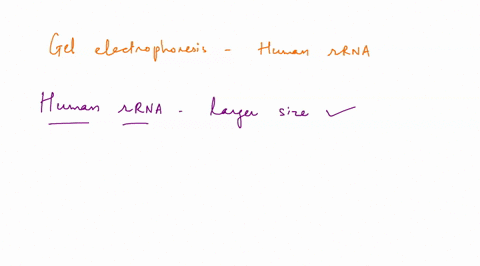 Gel electrophoresis - Human rRNA
Human rRNA - Larger size ✓